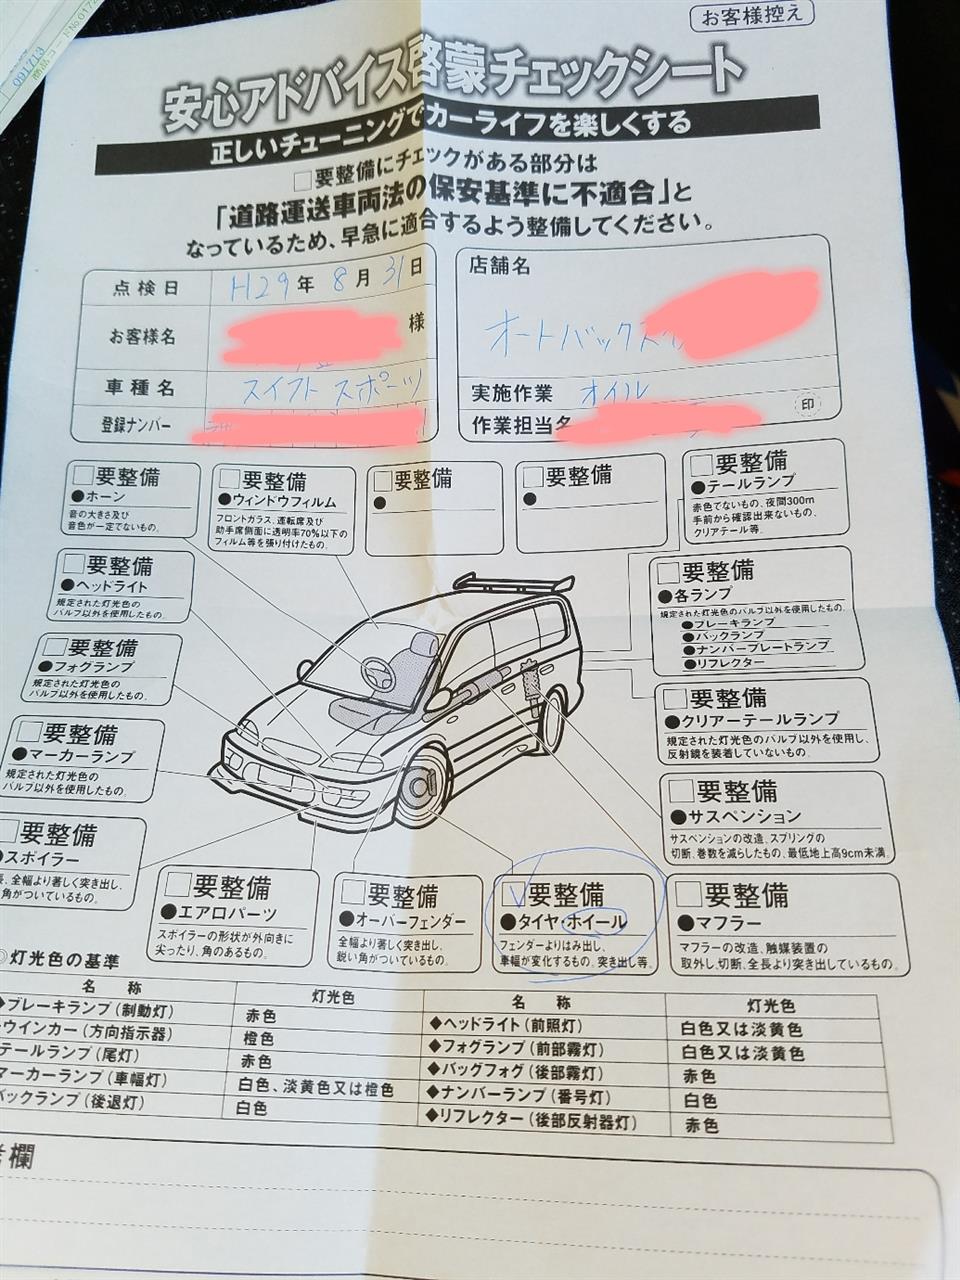 お客様控え
091713
商品コードNo.0172
安心アドバイス啓蒙チェックシート
正しいチューニングでカーライフを楽しくする
□要整備にチェックがある部分は
「道路運送車両法の保安基準に不適合」と
なっているため、早急に適合するよう整備してください。
点検日 H29年8月31日
お客様名 様
車種名 スイフトスポーツ
登録ナンバー
店舗名
オートバックス
実施作業 オイル
作業担当名
印
□要整備
●ホーン
音の大きさ及び
音色が一定でないもの。
□要整備
●ウィンドウフィルム
フロントガラス、運転席及び
助手席側面に透明率70%以下の
フィルム等を張り付けたもの。
□要整備
●
□要整備
●
□要整備
●テールランプ
赤色でないもの、夜間300m
手前から確認出来ないもの、
クリアテール等。
□要整備
●ヘッドライト
規定された灯光色の
バルブ以外を使用したもの。
□要整備
●各ランプ
規定された灯光色のバルブ以外を使用したもの。
●ブレーキランプ
●バックランプ
●ナンバープレートランプ
●リフレクター
□要整備
●フォグランプ
規定された灯光色の
バルブ以外を使用したもの。
□要整備
●クリアーテールランプ
規定された灯光色のバルブ以外を使用し、
反射鏡を装着していないもの。
□要整備
●マーカーランプ
規定された灯光色の
バルブ以外を使用したもの。
□要整備
●サスペンション
サスペンションの改造、スプリングの
切断、巻数を減らしたもの、最低地上高9cm未満。
□要整備
●スポイラー
長、全幅より著しく突き出し、
角がついているもの。
□要整備
●エアロパーツ
スポイラーの形状が外向きに
尖ったり、角のあるもの。
□要整備
●オーバーフェンダー
全幅より著しく突き出し、
鋭い角がついているもの。
☑要整備
●タイヤ・ホイール
フェンダーよりはみ出し、
車幅が変化するもの、突き出し等。
□要整備
●マフラー
マフラーの改造、触媒装置の
取外し、切断、全長より突き出しているもの。
◎灯光色の基準
名 称 灯光色 名 称 灯光色
◆ブレーキランプ(制動灯) 赤色 ◆ヘッドライト(前照灯) 白色又は淡黄色
ウインカー(方向指示器) 橙色 ◆フォグランプ(前部霧灯) 白色又は淡黄色
テールランプ(尾灯) 赤色 ◆バッグフォグ(後部霧灯) 赤色
マーカーランプ(車幅灯) 白色、淡黄色又は橙色 ◆ナンバーランプ(番号灯) 白色
バックランプ(後退灯) 白色 ◆リフレクター(後部反射器灯) 赤色
欄